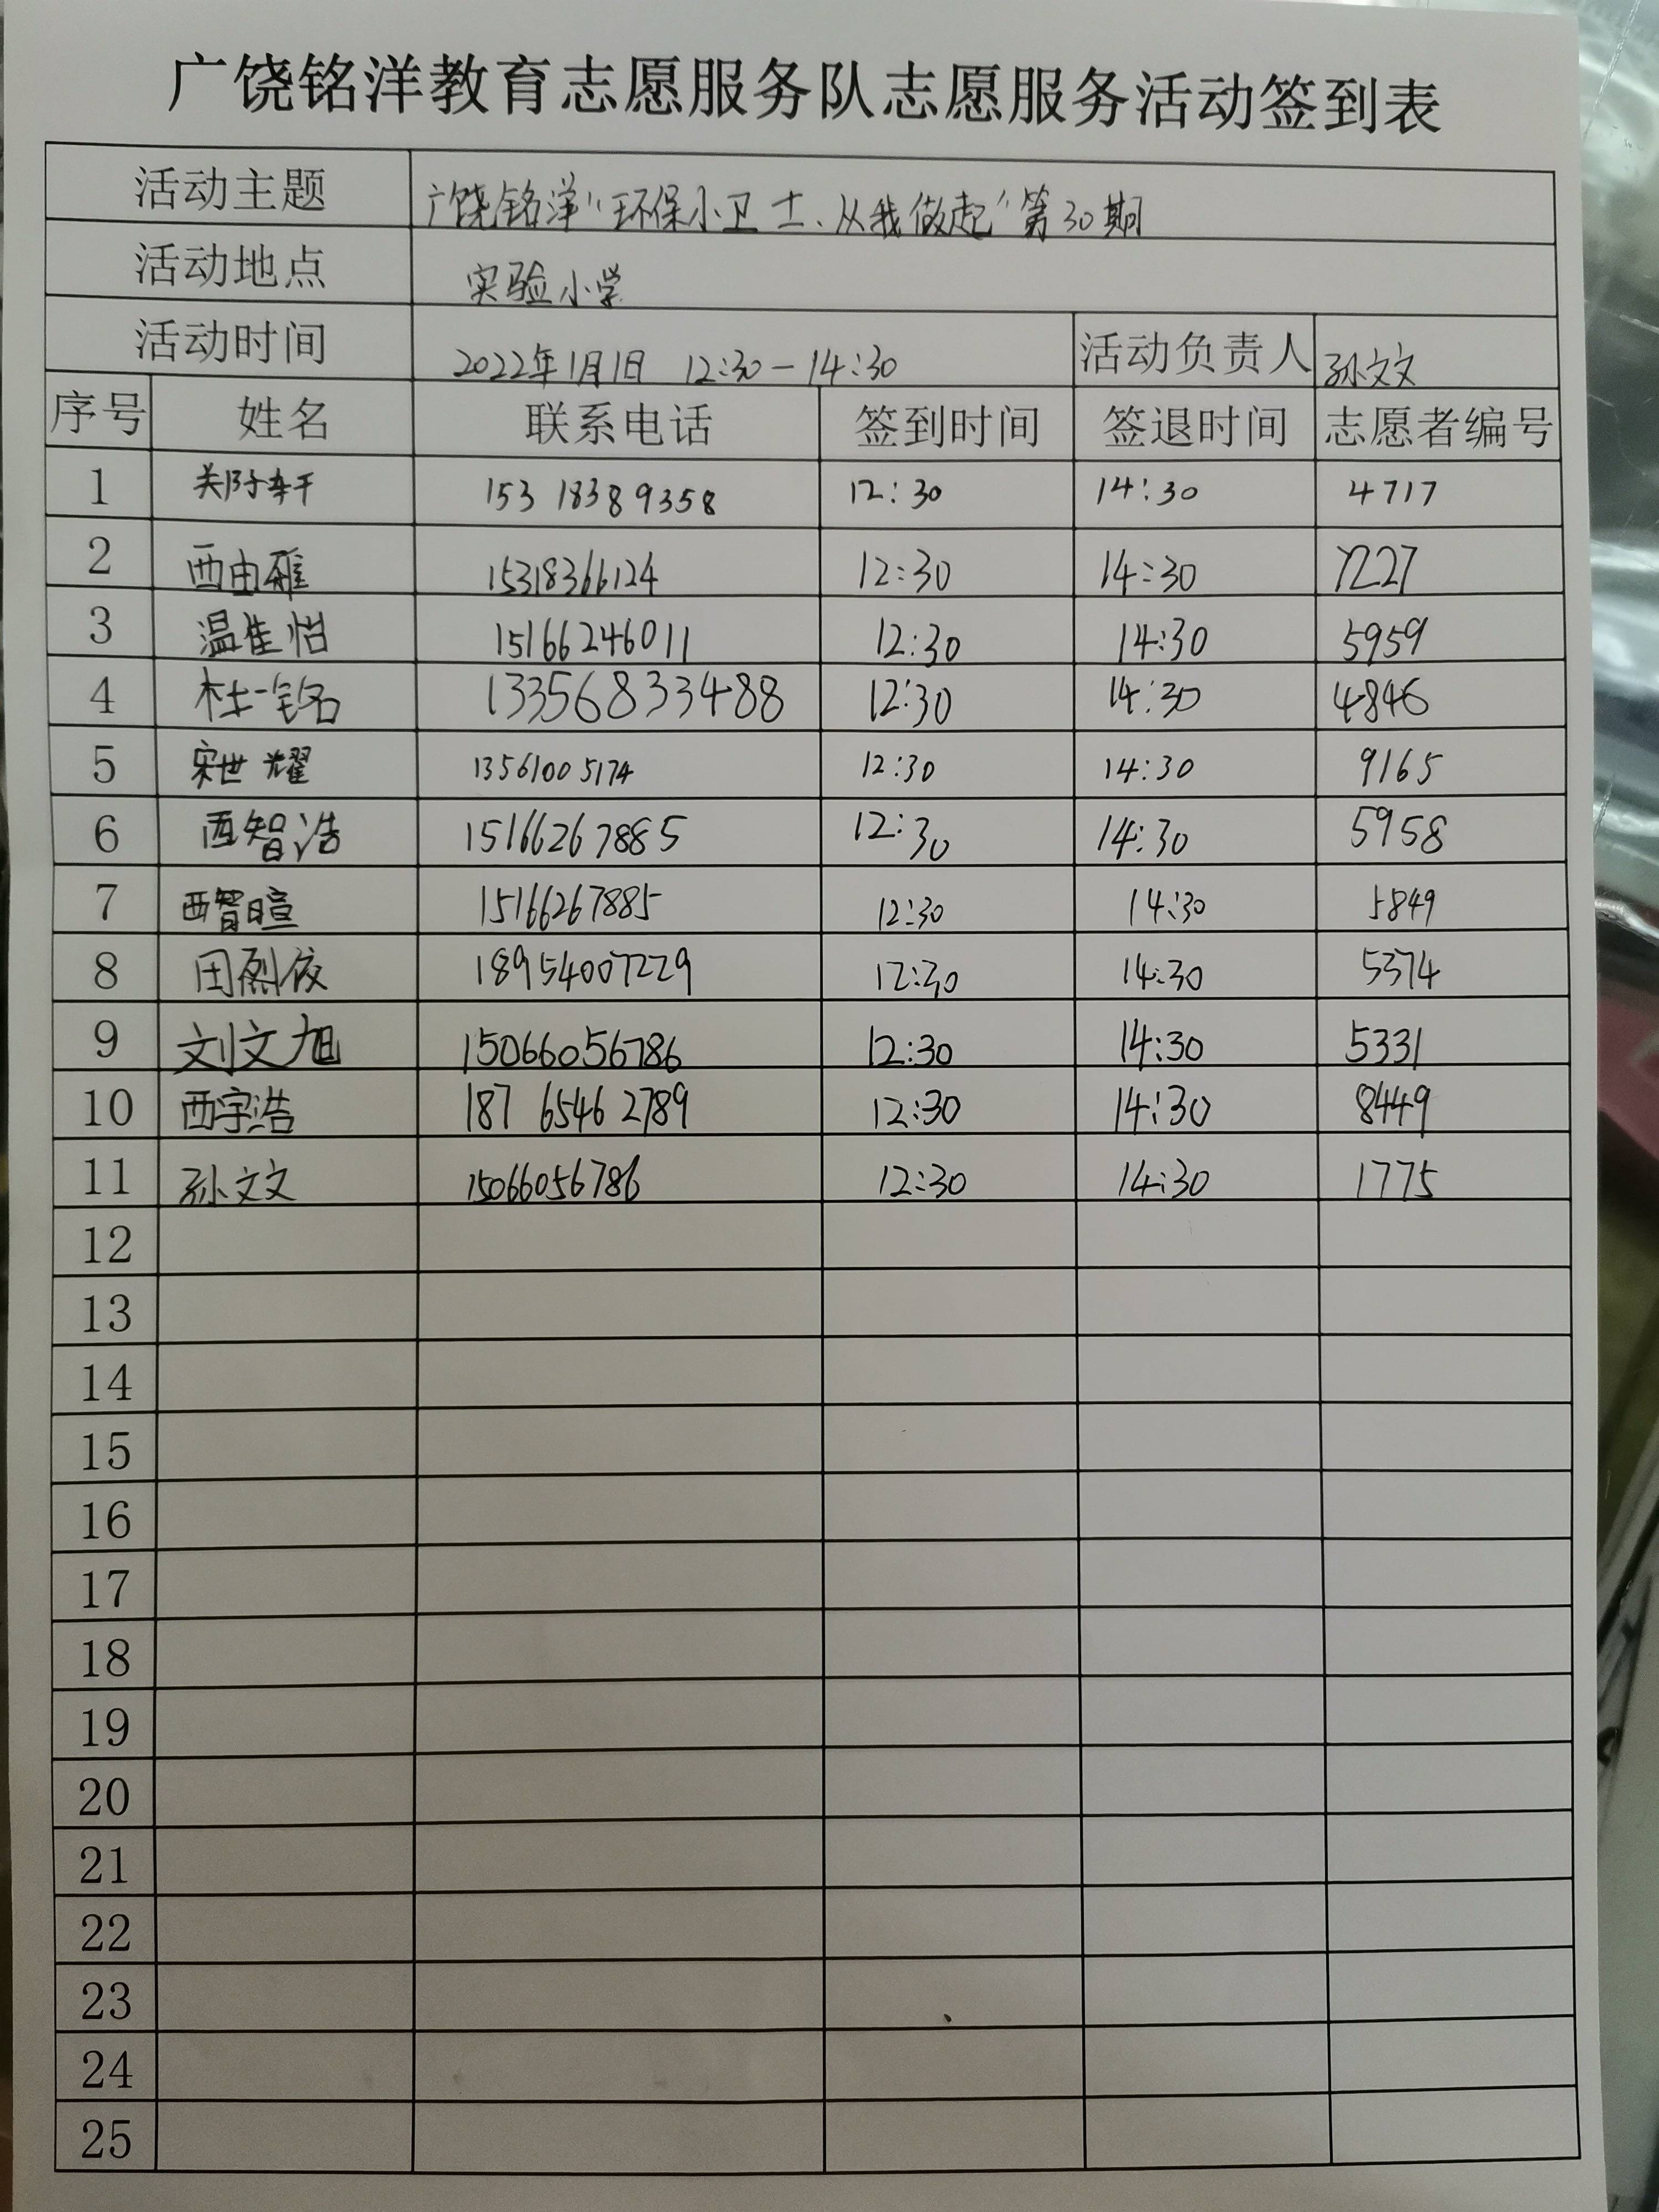 广饶铭洋教育志愿服务队志愿服务活动签到表
活动主题 广饶铭洋“环保小卫士、从我做起”第30期
活动地点 实验小学
活动时间 2022年1月1日 12:30—14:30 活动负责人 孙文文
序号 姓名 联系电话 签到时间 签退时间 志愿者编号
1 15318389358 12:30 14:30 4717
2 西由雅 15318366124 12:30 14:30 7227
3 温佳怡 15166246011 12:30 14:30 5959
4 杜一铭 13356833488 12:30 14:30 4846
5 宋世耀 13561005174 12:30 14:30 9165
6 西智浩 15166267885 12:30 14:30 5958
7 西智暄 15166267885 12:30 14:30 5849
8 田烈依 18954007229 12:30 14:30 5374
9 刘文旭 15066056786 12:30 14:30 5331
10 西宇浩 187 6546 2789 12:30 14:30 8449
11 孙文文 15066056786 12:30 14:30 1775
12
13
14
15
16
17
18
19
20
21
22
23
24
25